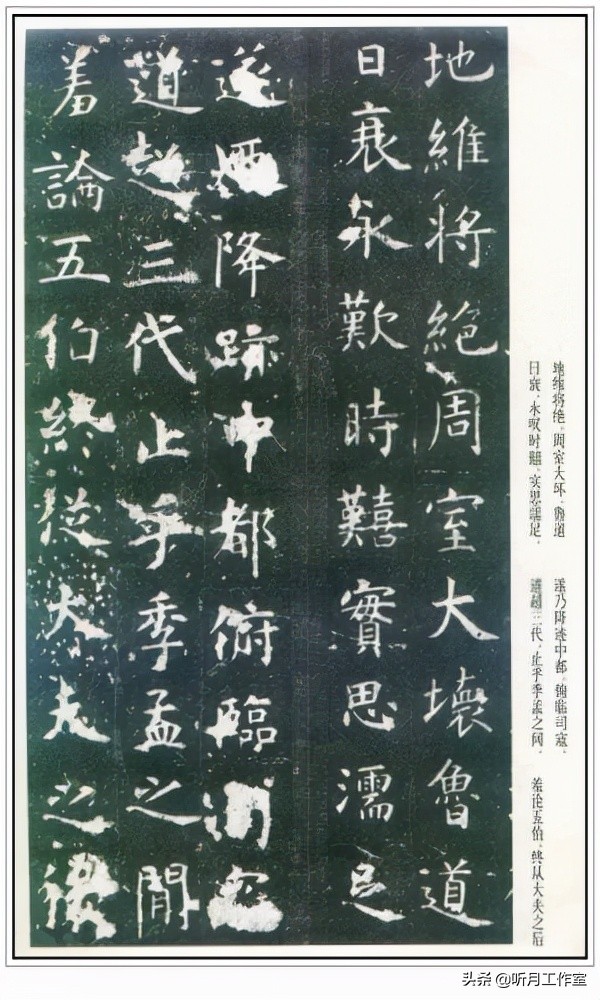 地維將絕周室大壞魯道
日衰永歎時囏實思濡足
遂廼降跡中都俯臨司寇
道超三代止乎季孟之閒
羞論五伯終從大夫之後
地维将绝。周室大坏。鲁道
日衰。永叹时囏。实思濡足。
遂乃降迹中都。俯临司寇。
道超三代。止乎季孟之间。
羞论五伯。终从大夫之后
头条 @听月工作室